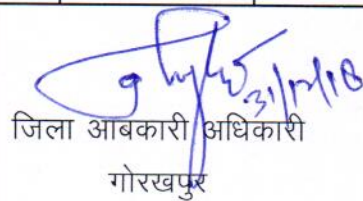 31/12/18
जिला आबकारी अधिकारी
गोरखपुर